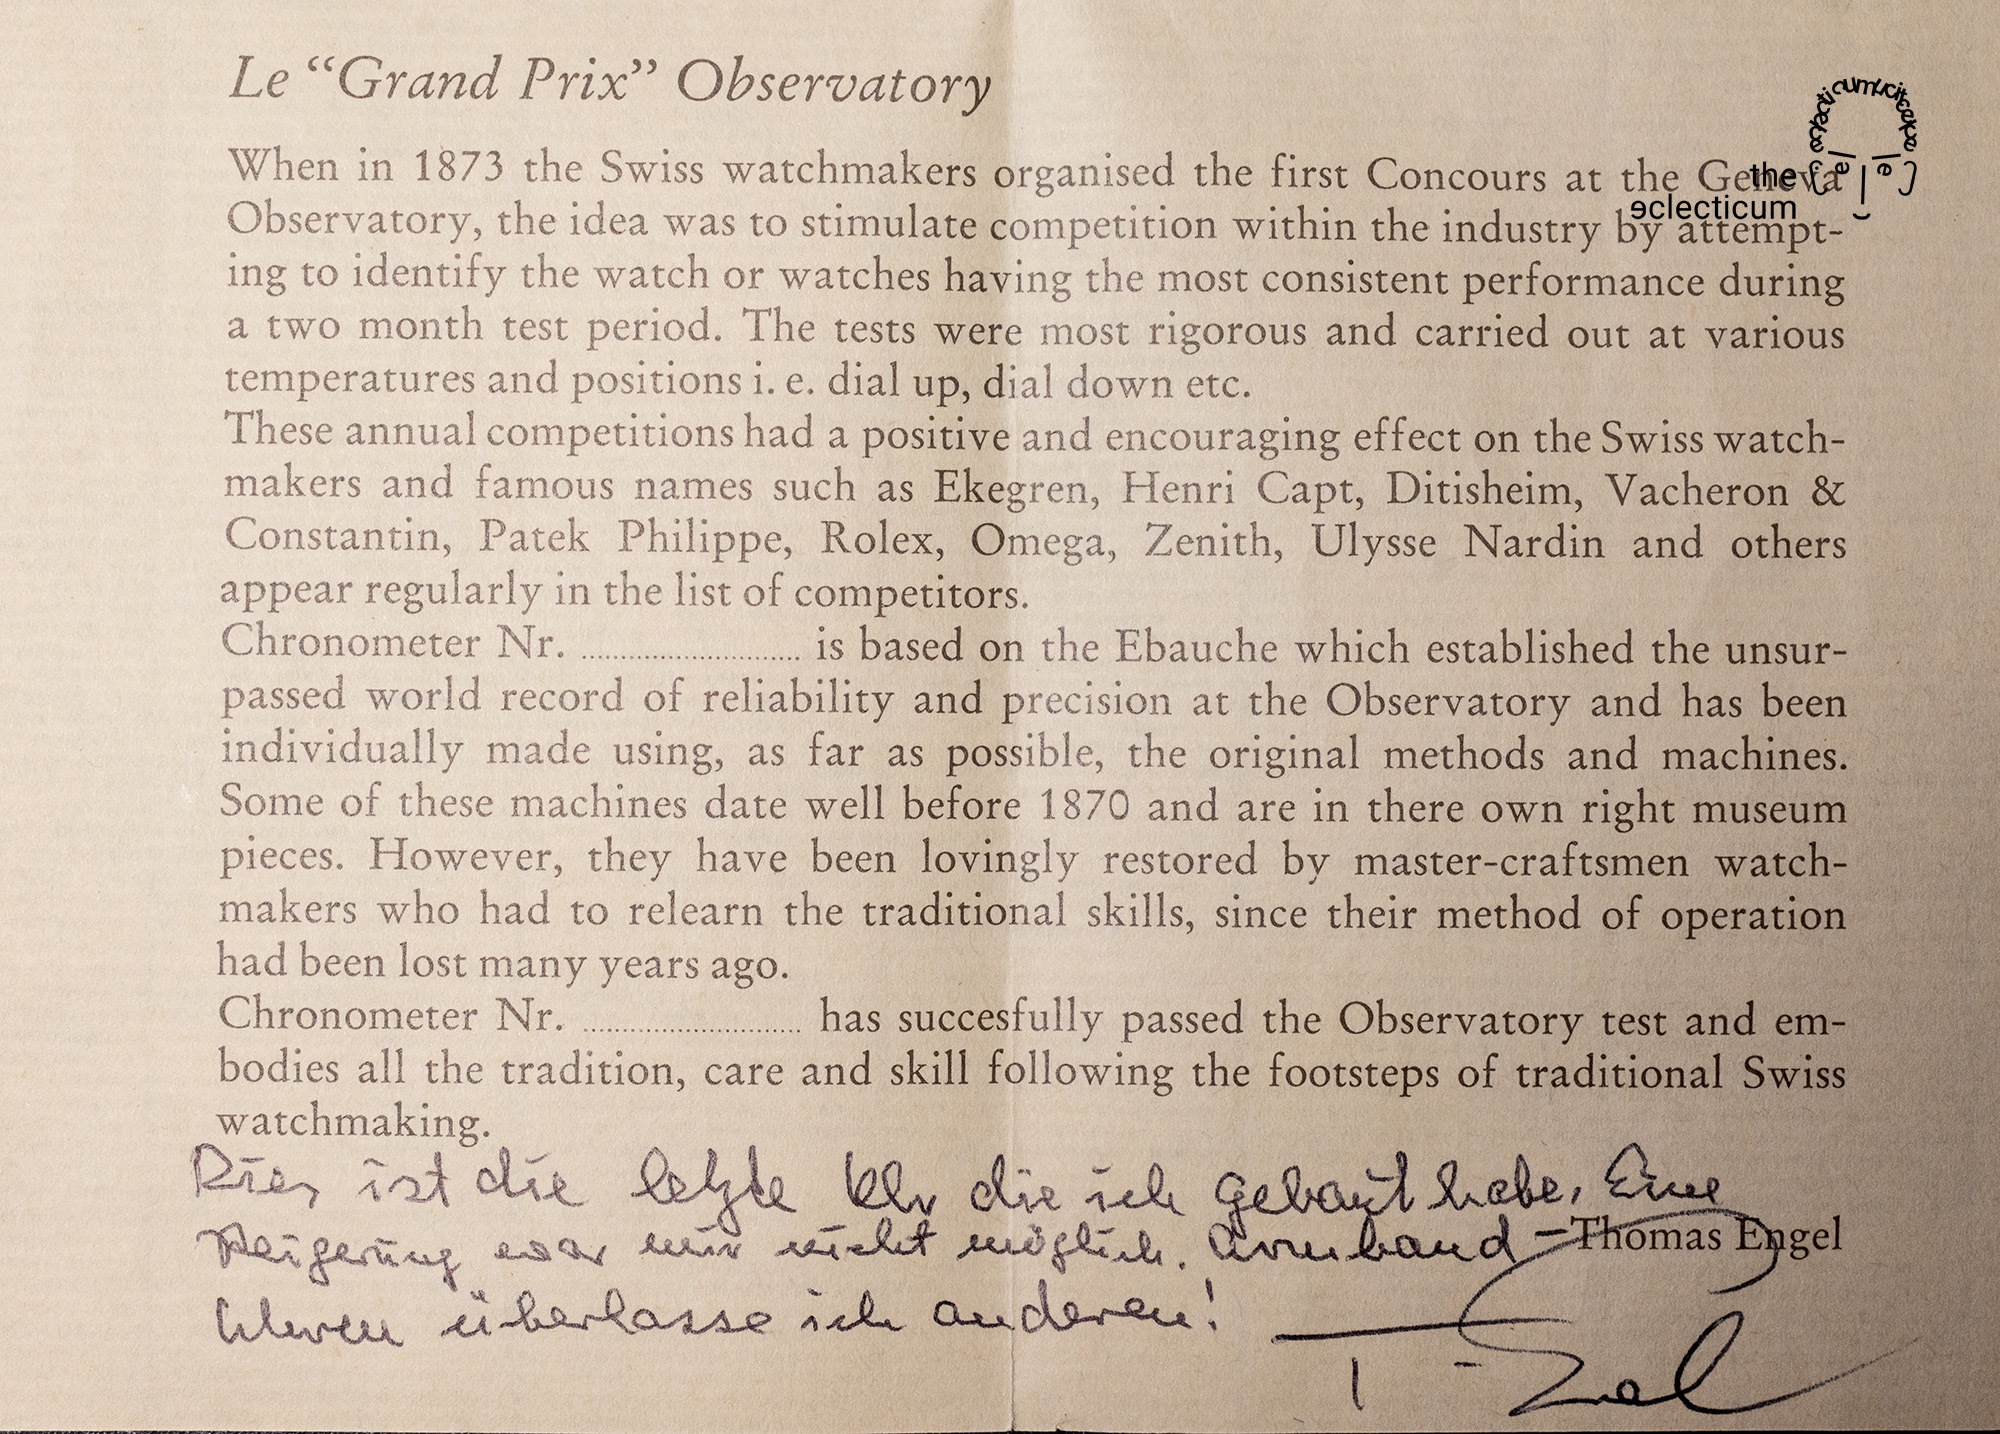 Le “Grand Prix” Observatory
When in 1873 the Swiss watchmakers organised the first Concours at the Geneva
Observatory, the idea was to stimulate competition within the industry by attempt-
ing to identify the watch or watches having the most consistent performance during
a two month test period. The tests were most rigorous and carried out at various
temperatures and positions i. e. dial up, dial down etc.
These annual competitions had a positive and encouraging effect on the Swiss watch-
makers and famous names such as Ekegren, Henri Capt, Ditisheim, Vacheron &
Constantin, Patek Philippe, Rolex, Omega, Zenith, Ulysse Nardin and others
appear regularly in the list of competitors.
Chronometer Nr. ............................ is based on the Ebauche which established the unsur-
passed world record of reliability and precision at the Observatory and has been
individually made using, as far as possible, the original methods and machines.
Some of these machines date well before 1870 and are in there own right museum
pieces. However, they have been lovingly restored by master-craftsmen watch-
makers who had to relearn the traditional skills, since their method of operation
had been lost many years ago.
Chronometer Nr. ............................ has succesfully passed the Observatory test and em-
bodies all the tradition, care and skill following the footsteps of traditional Swiss
watchmaking.
Dies ist die letzte Uhr die ich gebaut habe. Eine
war mir nicht möglich. Armband –
Thomas Engel
Uhren überlasse ich anderen!
the
eclecticum